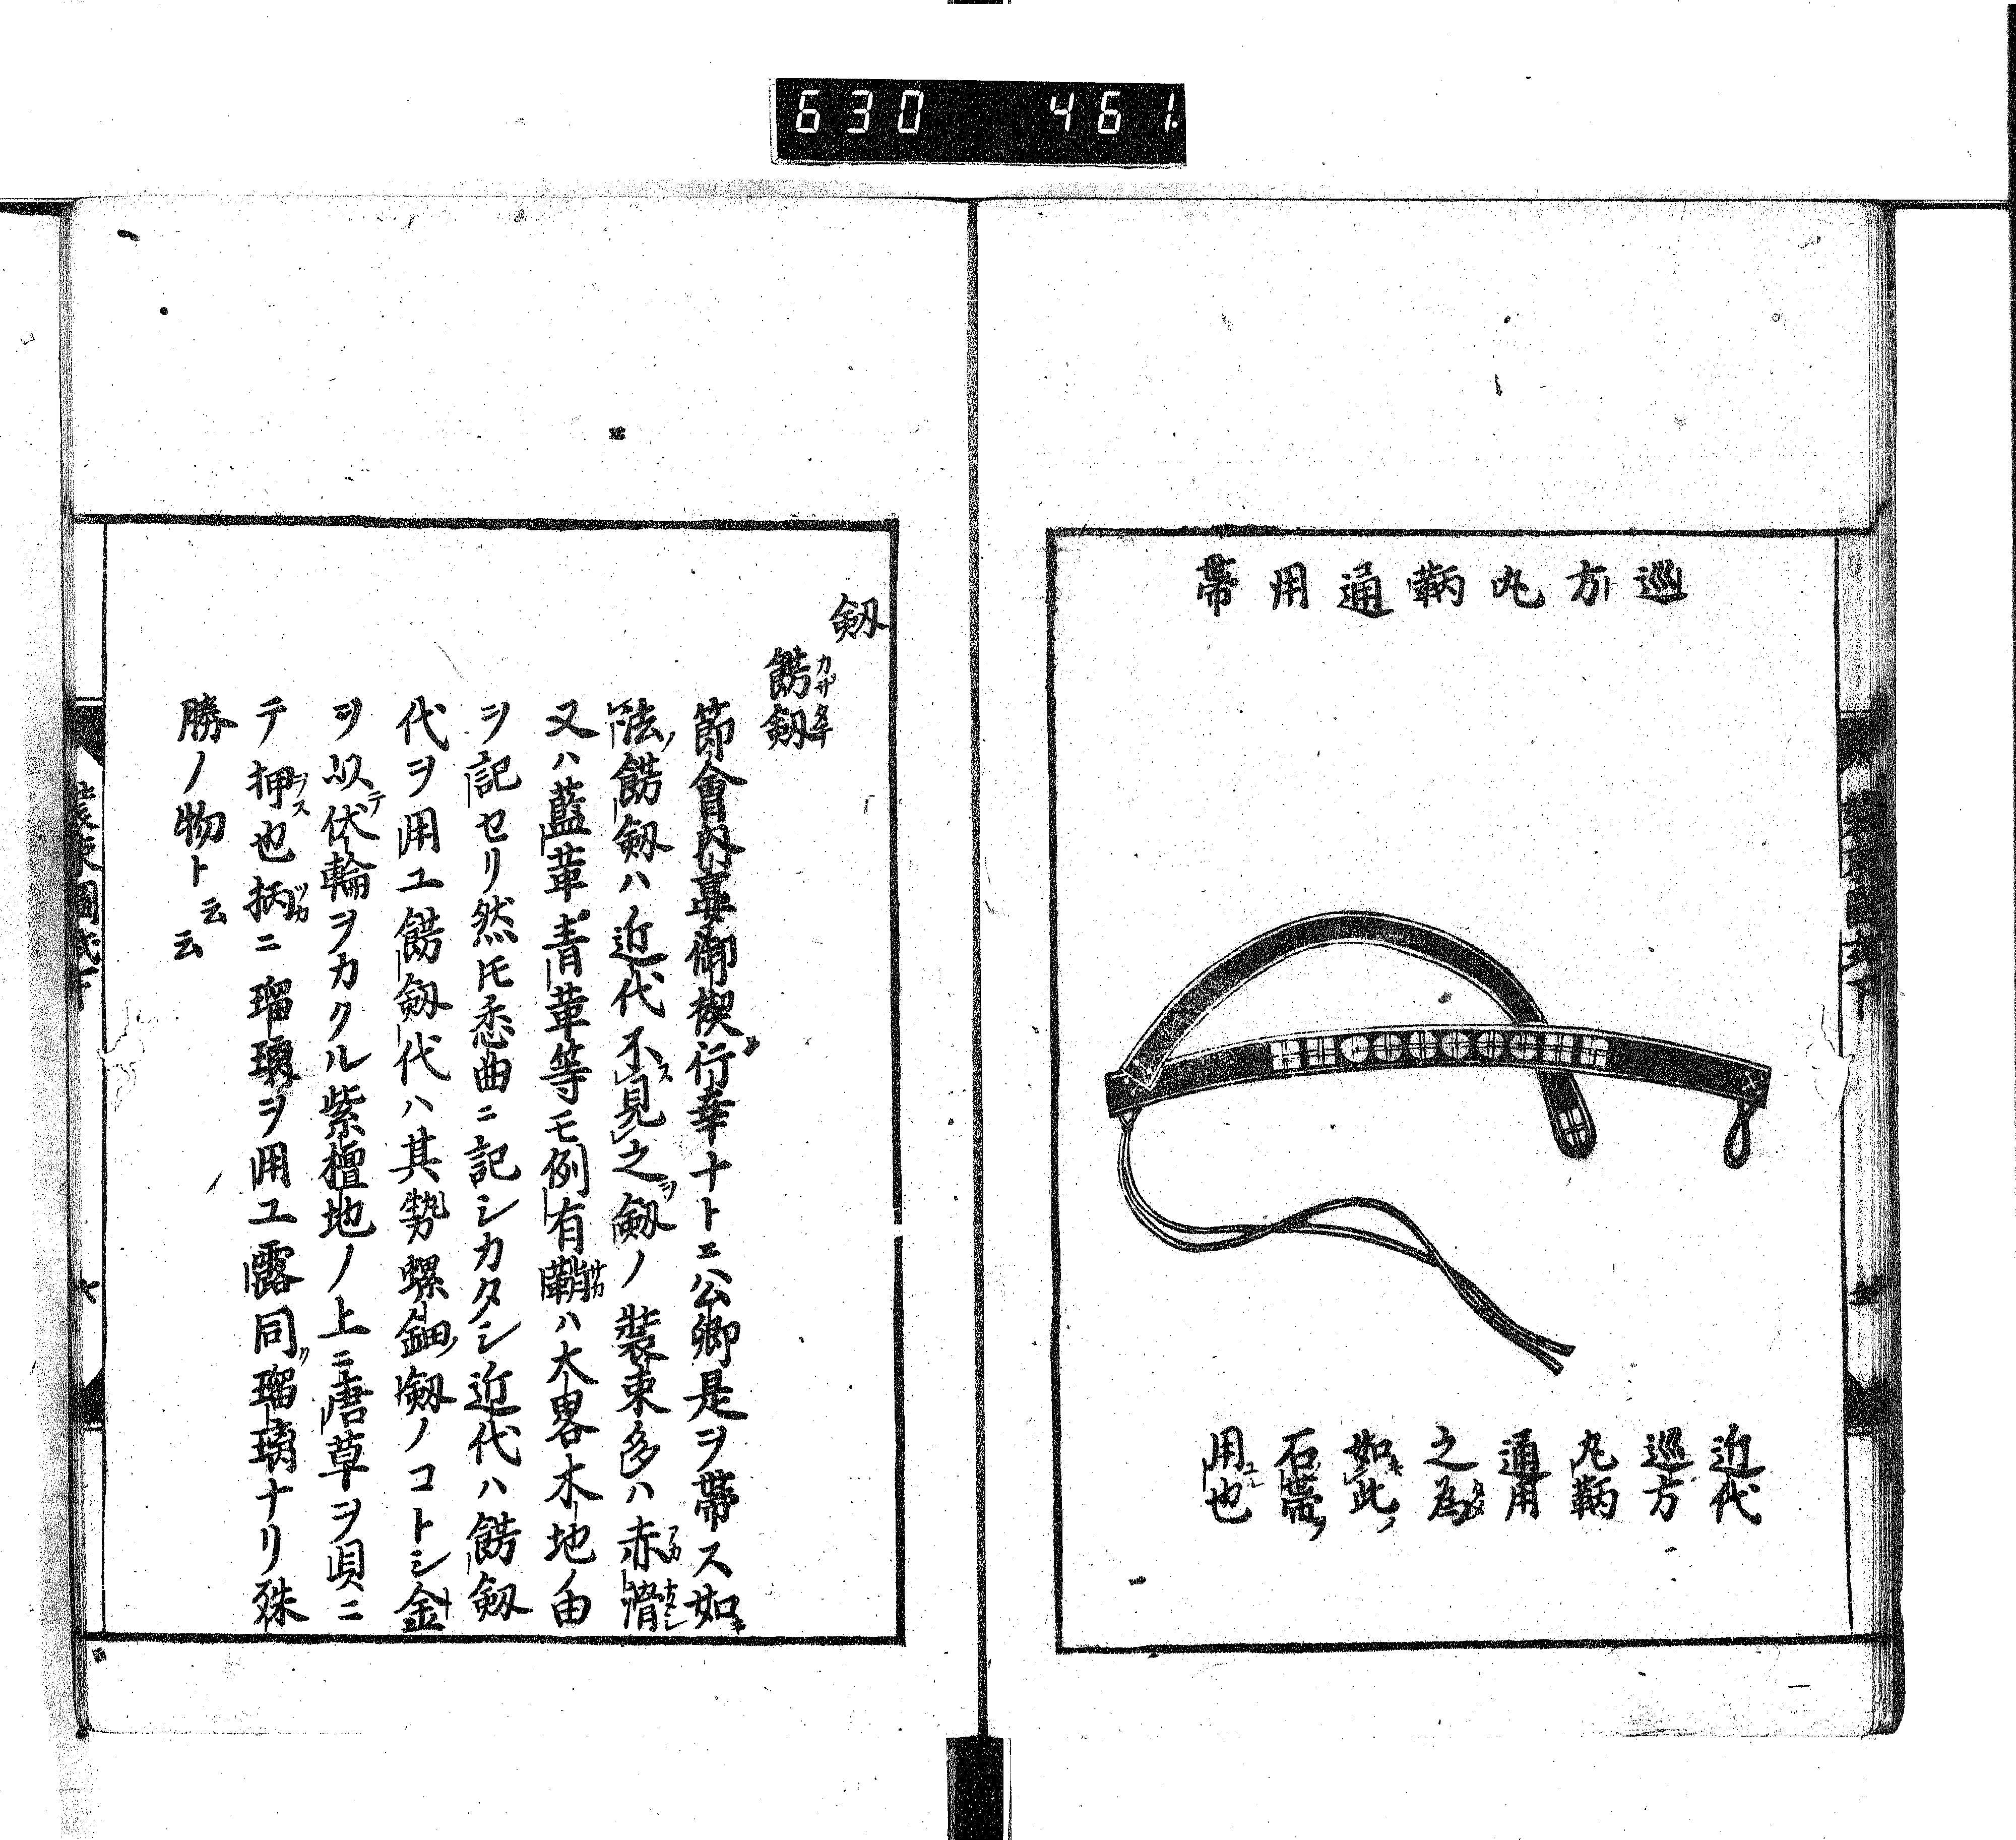 630 461
巡方丸鞆通用帯
近代
巡方
丸鞆
通用
之為
如此
石帯
用也
剱
餝剱
節會内宴御禊行幸ナトニ公卿是ヲ帯ス如
法餝剱ハ近代不見之剱ノ装束多ハ赤滑
又ハ藍革青革等モ例有鞘ハ大畧木地ノ由
ヲ記セリ然𪜈悉曲ニ記シカタシ近代ハ餝剱
代ヲ用ユ餝剱代ハ其勢螺鈿剱ノコトシ金
ヲ以伏輪ヲカクル紫檀地ノ上ニ唐草ヲ貝ニ
テ押也柄ニ瑠璃ヲ用ユ露同瑠璃ナリ殊
勝ノ物ト云云